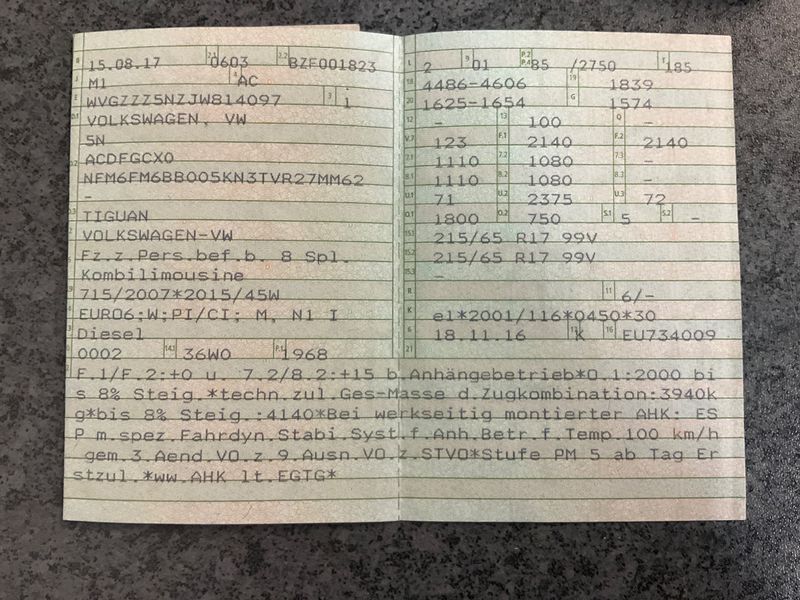 B 15.08.17 2.1 0603 2.2 BZF001823
J M1 4 AC
E WVGZZZ5NZJW814097 3 i
D.1 VOLKSWAGEN, VW
5N
D.2 ACDFGCX0
NFM6FM6BB005KN3TVR27MM62
-
D.3 TIGUAN
2 VOLKSWAGEN-VW
5 Fz.z.Pers.bef.b. 8 Spl.
Kombilimousine
V.9 715/2007*2015/45W
EURO6;W;PI/CI; M, N1 I
P.3 Diesel
0002 14.1 36W0 P.1 1968
L 2 9 01 P.2 P.4 85 /2750 T 185
18 4486-4606 19 1839
20 1625-1654 G 1574
12 - 13 100 Q -
V.7 123 F.1 2140 F.2 2140
7.1 1110 7.2 1080 7.3 -
8.1 1110 8.2 1080 8.3 -
U.1 71 U.2 2375 U.3 72
O.1 1800 O.2 750 S.1 5 S.2 -
15.1 215/65 R17 99V
15.2 215/65 R17 99V
15.3 -
R 11 6/-
K e1*2001/116*0450*30
6 18.11.16 17 K 16 EU734009
21
F.1/F.2:+0 u. 7.2/8.2:+15 b.Anhängebetrieb*O.1:2000 bi
s 8% Steig.*techn.zul.Ges-Masse d.Zugkombination:3940k
g*bis 8% Steig.:4140*Bei werkseitig montierter AHK: ES
P m.spez.Fahrdyn.Stabi.Syst.f.Anh.Betr.f.Temp.100 km/h
gem.3.Aend.VO.z.9.Ausn.VO.z.STVO*Stufe PM 5 ab Tag Er
stzul.*ww.AHK lt.EGTG*